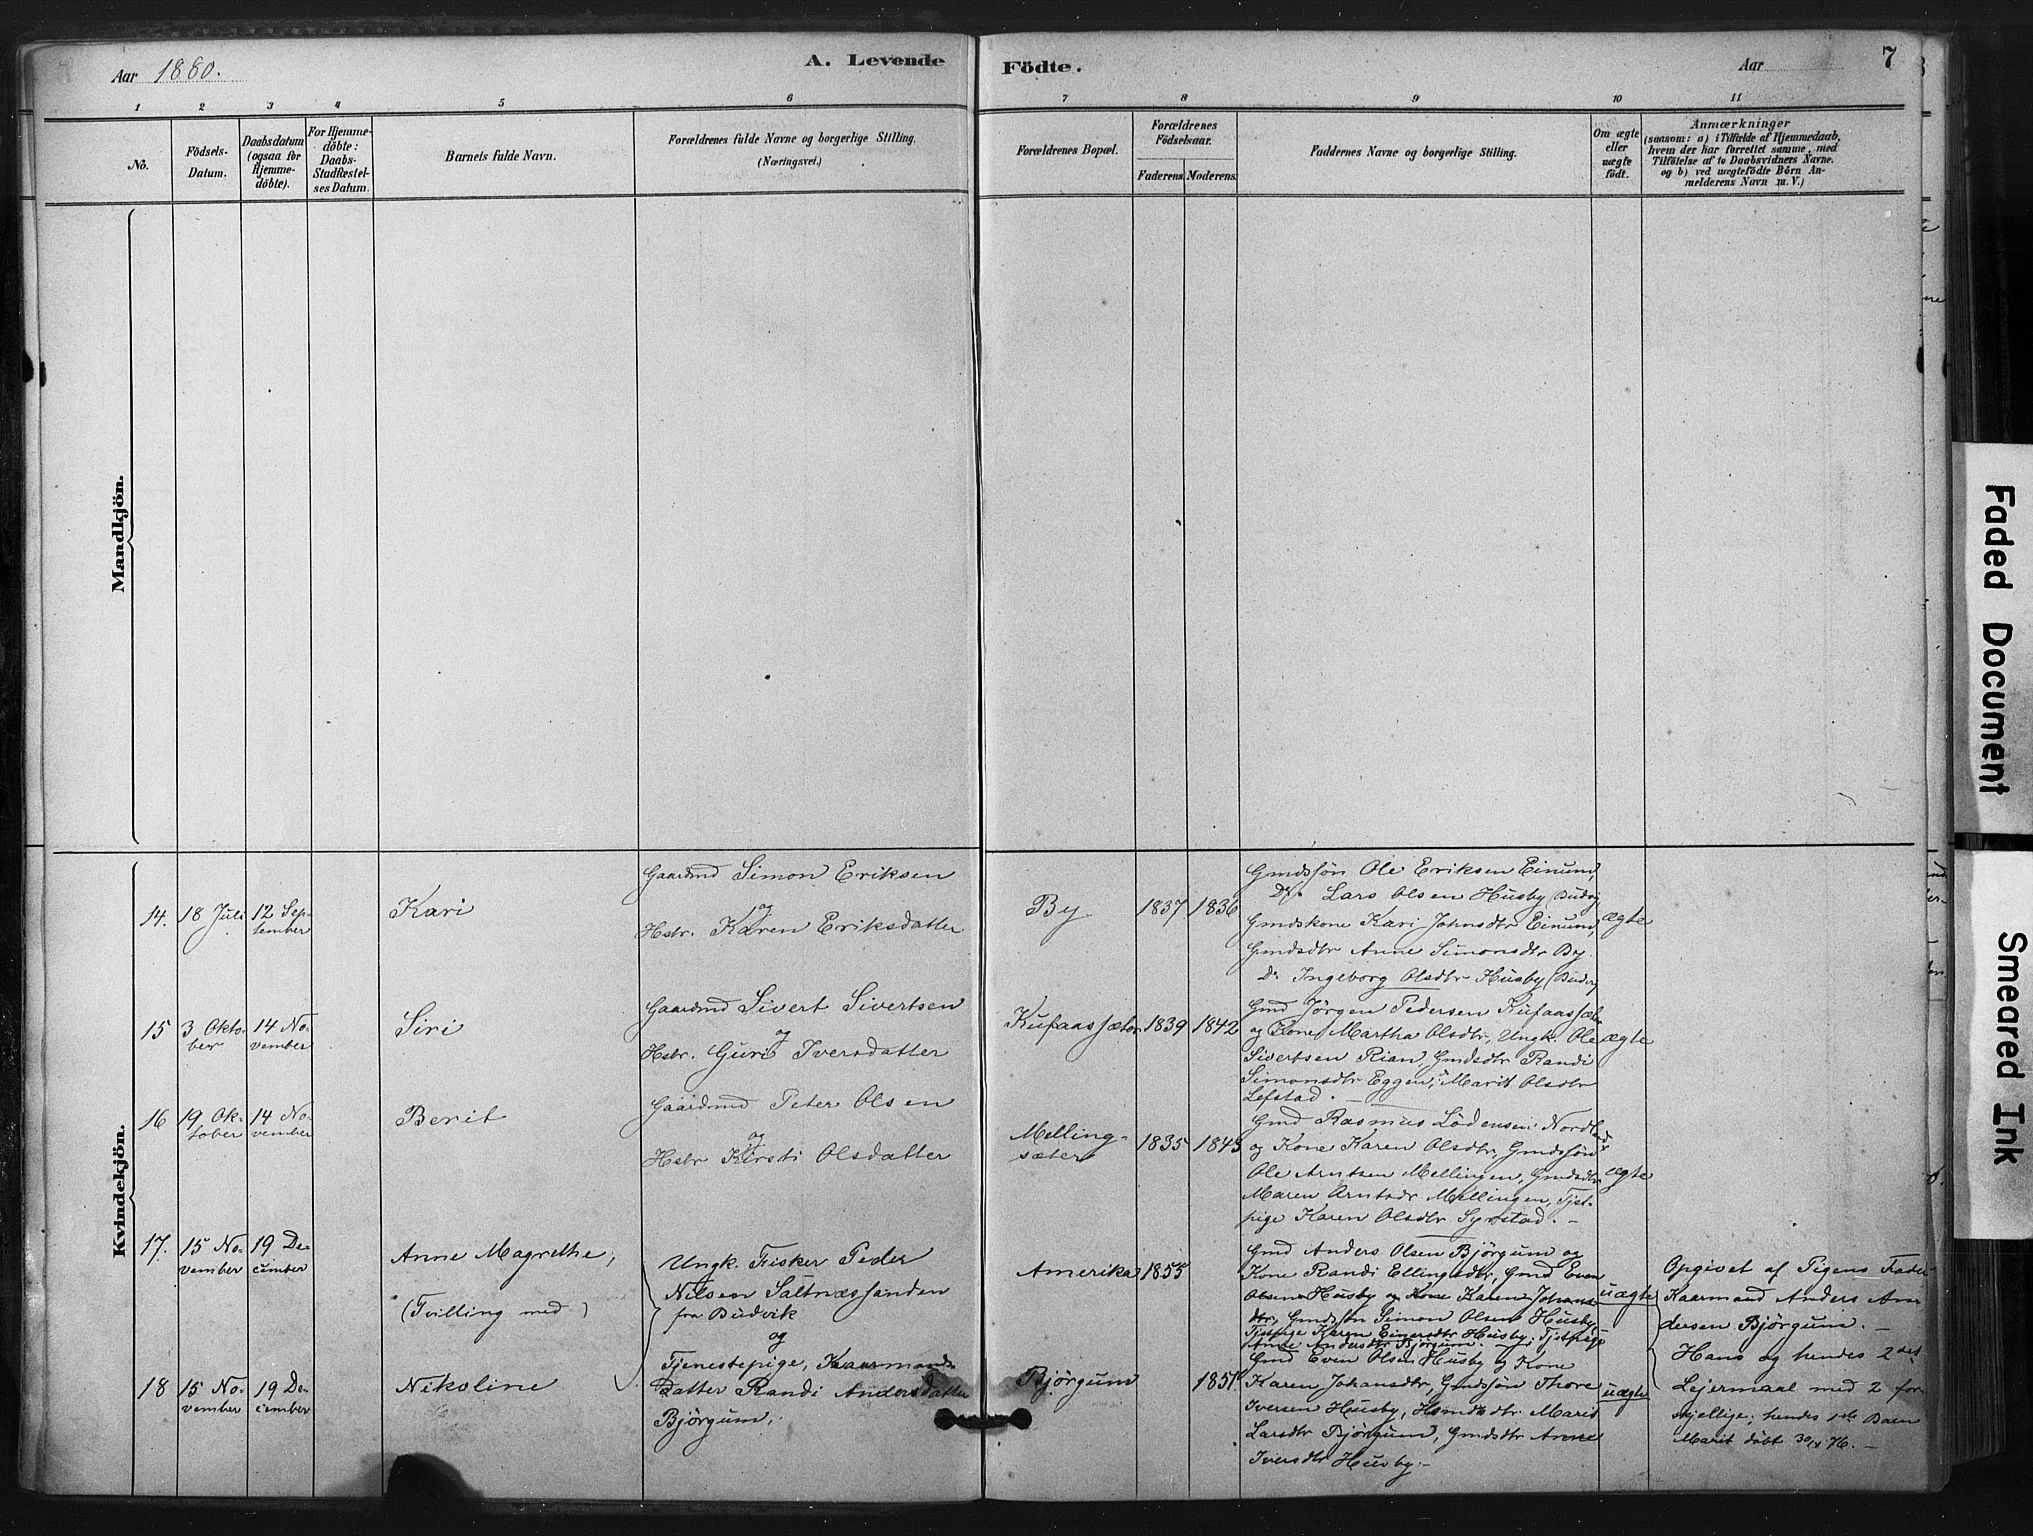 Aar 1880.
A. Levende
Födte.
Aar
7
1
2
3
4
5
6
7
8
9
10
11
No.
Födsels-
Datum.
Daabsdatum
(ogsaa før
Hjemme-
döbte).
For Hjemme-
döbte:
Daabs-
Stadfæstel-
ses Datum.
Barnets fulde Navn.
Forældrenes fulde Navne og borgerlige Stilling.
(Næringsvei.)
Forældrenes Bopæl.
Forældrenes
Födselsaar.
Faderens.
Moderens.
Faddernes Navne og borgerlige Stilling.
Om ægte
eller
uægte
födt.
Anmærkninger
(saasom: a) i Tilfælde af Hjemmedaab,
hvem der har forrettet samme, med
Tilföielse af to Daabsvidners Navne.
og b) ved uægtefödte Börn An-
melderens Navn m. V.)
Mandkjön.
Kvindekjön.
14.
18 Juli
12 Sep-
tember
Kari
Gaardmd Simon Eriksen
og
Hstr. Karen Eriksdatter
By
1837
1836
Gmdssön Ole Eriksen Einum,
Do. Lars Olsen Husby
Gmdskone Kari Johnsdtr Einum,
Gmdsdtr Anne Simonsdtr By
Do Ingeborg Olsdtr Husby
ægte
15
3 Okto-
ber
14 No-
vember
Siri
Gaardmd Sivert Sivertsen
og
Hstr. Guri Iversdatter
Kufaassæter
1839
1842
Gmd Jørgen Pedersen Kufaassæter
og Kone Martha Olsdtr, Ungk. Ole
Sivertsen Rian, Gmdsdtr Randi
Simonsdtr Eggen, Marit Olsdtr
Lefstad.
ægte
16
19 Ok-
tober
14 No-
vember
Berit
Gaardmd Peter Olsen
og
Hstr Kirsti Olsdatter
Melling-
sæter
1835
1843
Gmd Rasmus
og Kone Karen Olsdtr, Gmdssön
Ole Arntsen Mellingen, Gmdsdtr
Maren Arntsdr Mellingen, Tjst-
pige Karen Olsdtr Syrstad.
ægte
17.
15 No-
vember
19 De-
cember
Anne Magrethe,
(Tvilling med)
Ungk. Fisker Peder
Nilsen Saltnæssanden
fra Budvik
og
Tjenestepige, Kaarmands-
datter Randi Andersdatter
Bjørgum.
Amerika
1855
Gmd Anders Olsen Bjørgum og
Kone Randi Ellingsdtr, Gmd Even
Olsen Husby og Kone Karen Johans-
dtr, Gmdssön Simon Olsen Husby
Tjstpige Karen Einersdtr Husby, Tjstpige
Anne Andersdtr Bjørgum.
uægte
Opgivet af Pigens Fader
Kaarmand Anders An-
dersen Bjørgum.
Hans og hendes 2det
Lejermaal med 2 for-
skjellige; hendes 1ste Barn
Marit døbt 30/4 76.
18
15 No-
vember
19 De-
cember
Nikoline
Bjørgum
1851
Gmd Even Olsen Husby og Kone
Karen Johansdtr, Gmdssön Thore
Iversen Husby, Hsmdsdtr Marit
Larsdtr Bjørgum, Gmdsdtr Anne
Iversdtr Husby.
uægte
Faded Document
Smeared Ink